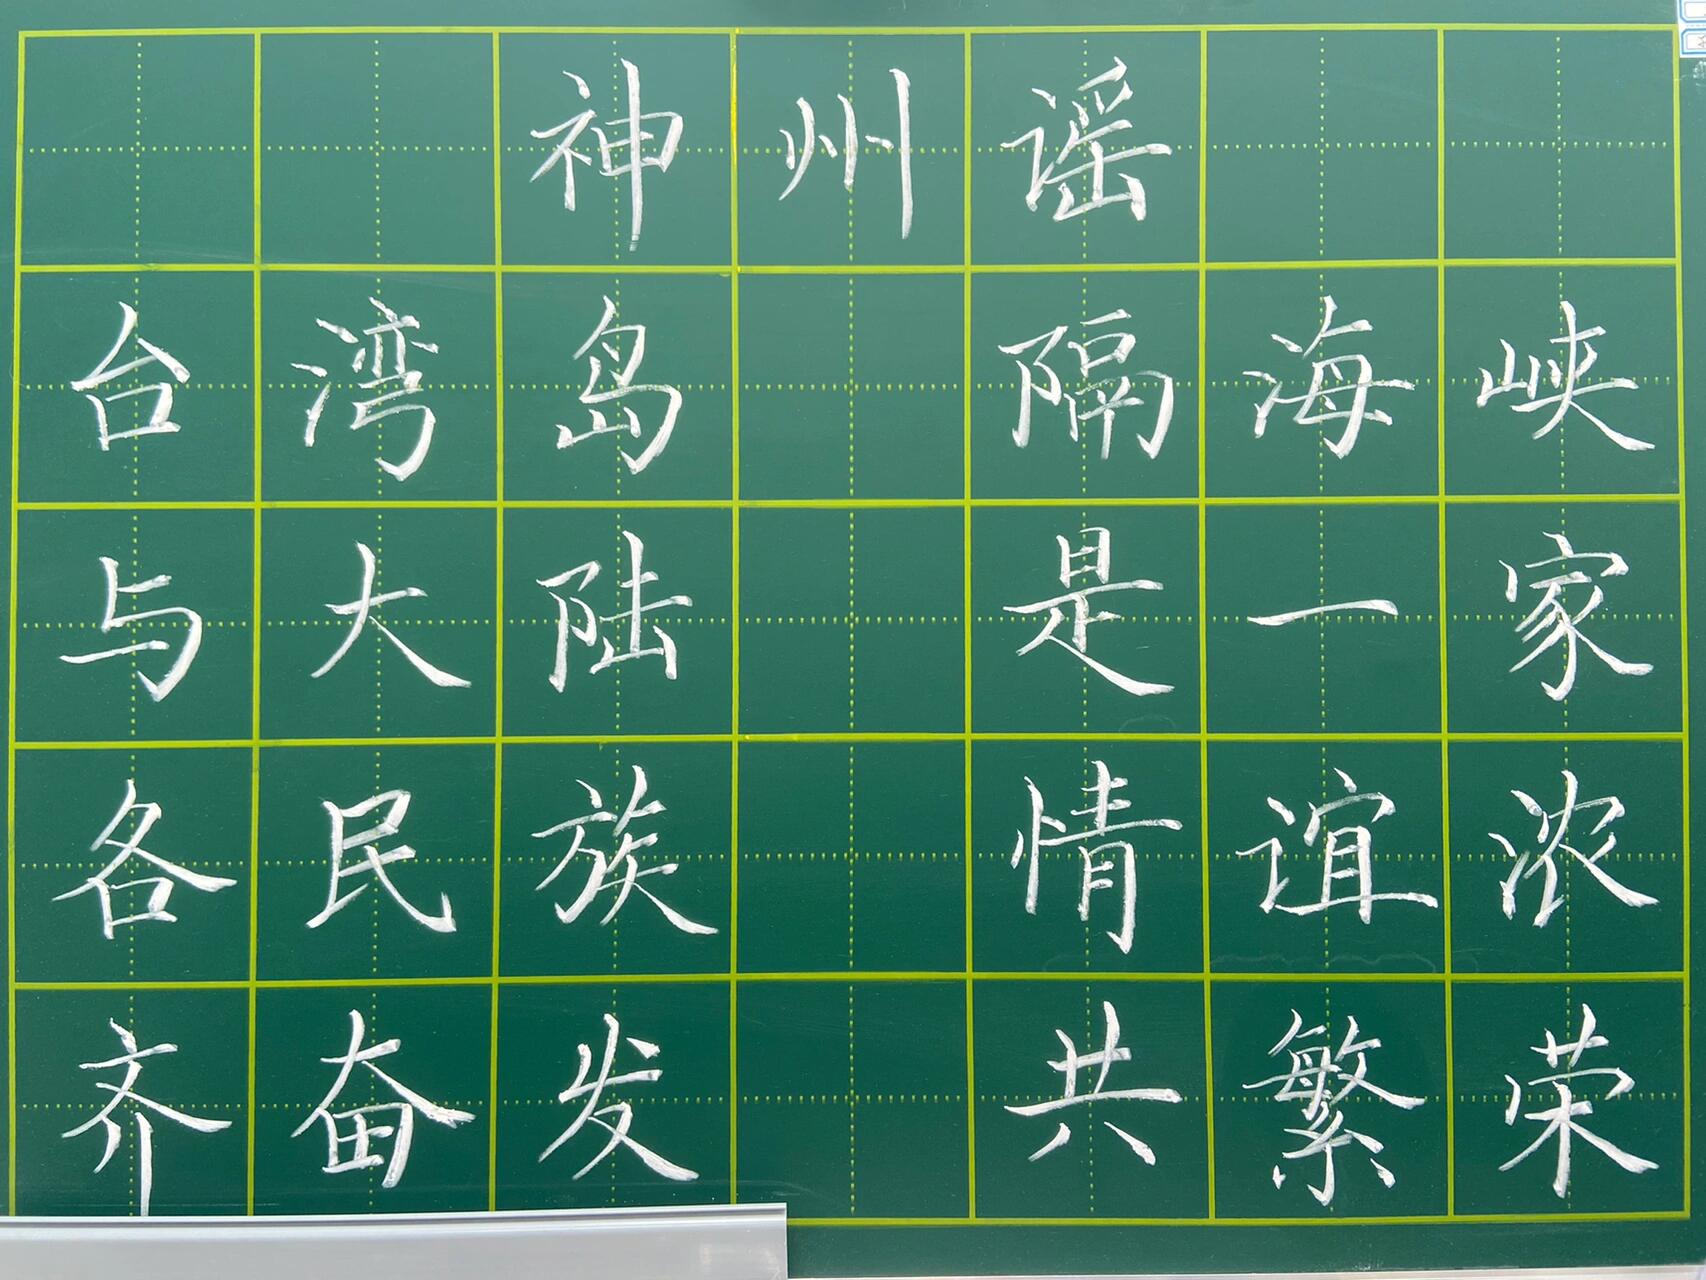 神州谣
台湾岛 隔海峡
与大陆 是一家
各民族 情谊浓
齐奋发 共繁荣